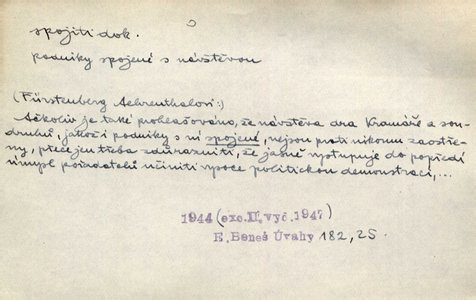 spojiti dok.
podniky spojené s návštěvou
(Fürstenberg Aehrenthalovi:)
Ačkoliv je také prohlašováno, že návštěva dra Kramáře a sou-
druhů, jakož i podniky s ní spojené, nejsou proti nikomu zaostře-
ny, přece jen třeba zdůrazniti, že jasně vystupuje do popředí
úmysl pořadatelů učiniti vysoce politickou demonstraci,...
1944 (exc. II. vyd. 1947)
E. Beneš Úvahy 182, 25.